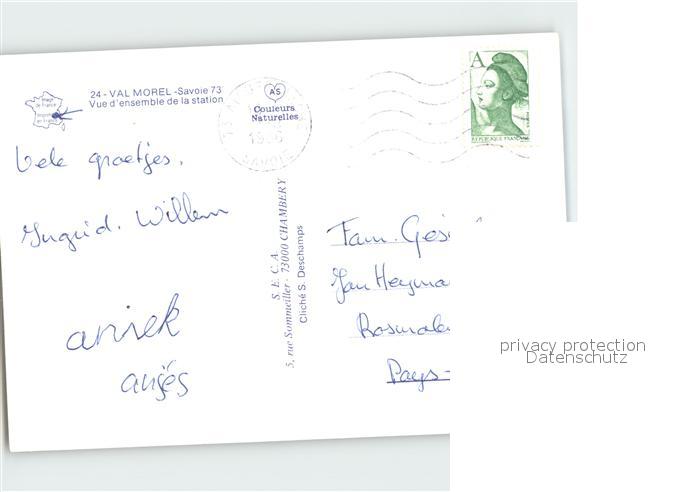 24 - VAL MOREL - Savoie 73
Vue d'ensemble de la station
AS
Couleurs
Naturelles
SAVOIE
A
REPUBLIQUE FRANÇAISE
Vele groetjes,
Ingrid. Willem
aniek
S. E. C. A.
5, rue Sommeiller - 73000 CHAMBERY
Cliché S. Deschamps
Fam.
Jan Heyma
Rosmale
Pays-
privacy protection
Datenschutz